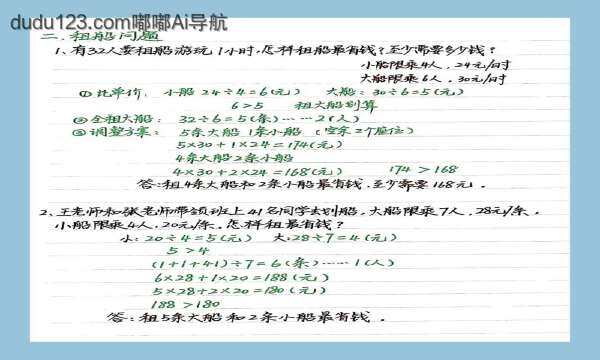 dudu123.com嘟嘟Ai导航
二、租船问题
1、有32人要租船游玩1小时,怎样租船最省钱?至少需要多少钱?
小船限乘4人,24元/时
大船限乘6人,30元/时
①比单价: 小船 24÷4=6(元) 大船:30÷6=5(元)
6>5 租大船划算
②全租大船: 32÷6=5(条)……2(人)
③调整方案: 5条大船 1条小船 (空余2个座位)
5×30+1×24=174(元)
4条大船2条小船
4×30+2×24=168(元) 174>168
答:租4条大船和2条小船最省钱,至少需要168元。
2、王老师和张老师带领班上41名同学去划船,大船限乘7人,28元/条,
小船限乘4人,20元/条,怎样租最省钱?
小:20÷4=5(元) 大:28÷7=4(元)
5>4
(1+1+41)÷7=6(条)……1(人)
6×28+1×20=188(元)
5×28+2×20=180(元)
188>180
答:租5条大船和2条小船最省钱。